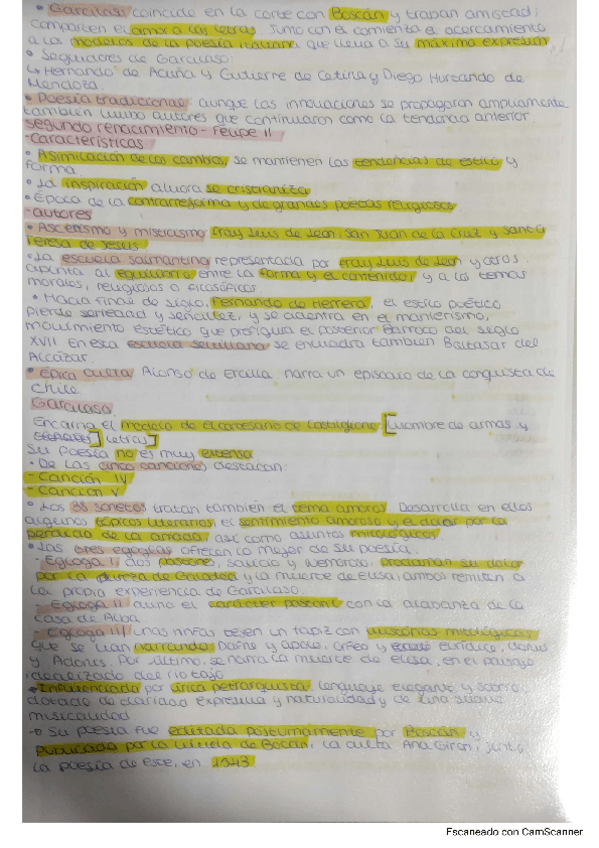 • Garcilaso coincide en la corte con Boscán y traban amistad;
comparten el amor a las letras. Junto con el comienza el acercamiento
a los modelos de la poesía italiana que lleva a su máxima expresión
• Seguidores de Garcilaso:
↳ Hernando de Acuña y Gutierre de Cetina y Diego Hurtado de
Mendoza.
• Poesía tradicional: aunque las innovaciones se propagaron ampliamente
también hubo autores que continuaron como la tendencia anterior.
Segundo renacimiento - Felipe II
-Características
• Asimilación de los cambios, se mantienen las tendencias de estilo y
forma.
• La inspiración ahora se cristianiza
• Época de la contrarreforma y de grandes poetas religiosos
-autores
• Ascetismo y misticismo fray Luis de León, San Juan de la Cruz y Santa
Teresa de Jesús
• La escuela salmantina representada por fray Luis de León y otros.
apunta al equilibrio entre la forma y el contenido, y a los temas
morales, religiosos o filosóficos.
• Hacia final de siglo, Fernando de Herrera, el estilo poético
pierde seriedad y sencillez, y se adentra en el manierismo,
movimiento estético que prefigura el posterior Barroco del siglo
XVII. En esta escuela sevillana se encuadra también Baltasar del
Alcázar.
• Épica culta: Alonso de Ercilla narra un episodio de la conquista de
Chile
Garcilaso
Encarna el modelo de el cortesano de Castiglione [hombre de armas y
letras]
Su poesía no es muy extensa
• De las cinco canciones destacan:
- Canción IV
- Canción V
• Los 38 sonetos tratan también el tema amoros. Desarrolla en ellos
algunos tópicos literarios, el sentimiento amoroso y el dolor por la
pérdida de la amada, así como asuntos mitológicos
• Las tres églogas ofrecen lo mejor de su poesía.
- Egloga I: dos pastores, Salicio y Nemoroso, proclaman su dolor
por la dureza de Galatea y la muerte de Elisa, ambos remiten a
la propia experiencia de Garcilaso.
- Egloga II: aúna el carácter pastoril con la alabanza de la
Casa de Alba
- Egloga III: Unas ninfas tejen un tapiz con historias mitológicas
que se van narrando Dafne y Apolo, Orfeo y Eurídice, Venus
y Adonis. Por último, se narra la muerte de Elisa, en el paisaje
idealizado del río Tajo
• Influenciada por lírica petrarquista. Lenguaje elegante y sobrio,
dotado de claridad expresiva y naturalidad y de una suave
musicalidad
→ Su poesía fue editada póstumamente por Boscán y
publicada por la viuda de Boscán, la culta Ana Girón, junto
la poesía de este, en 1543
Escaneado con CamScanner